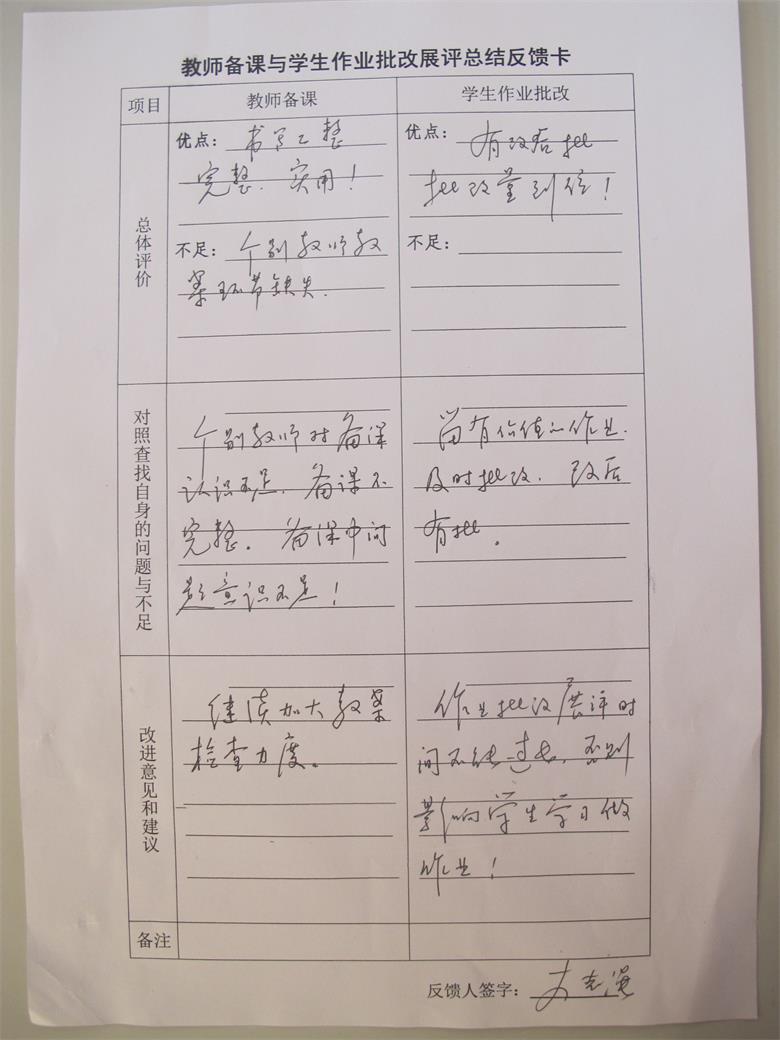 教师备课与学生作业批改展评总结反馈卡
项目
教师备课
学生作业批改
总体评价
优点：书写工整
完整、实用！
不足：个别教师教
案环节缺失.
优点：有改后批
批改量到位！
不足：
对照查找自身的问题与不足
个别教师对备课
认识不足、备课不
完整。备课中问
题意识不足！
留有价值的作业.
及时批改、改后
有批。
改进意见和建议
继续加大教案
检查力度。
作业批改展评时
间不能过长，否则
影响学生学习做
作业！
备注
反馈人签字：